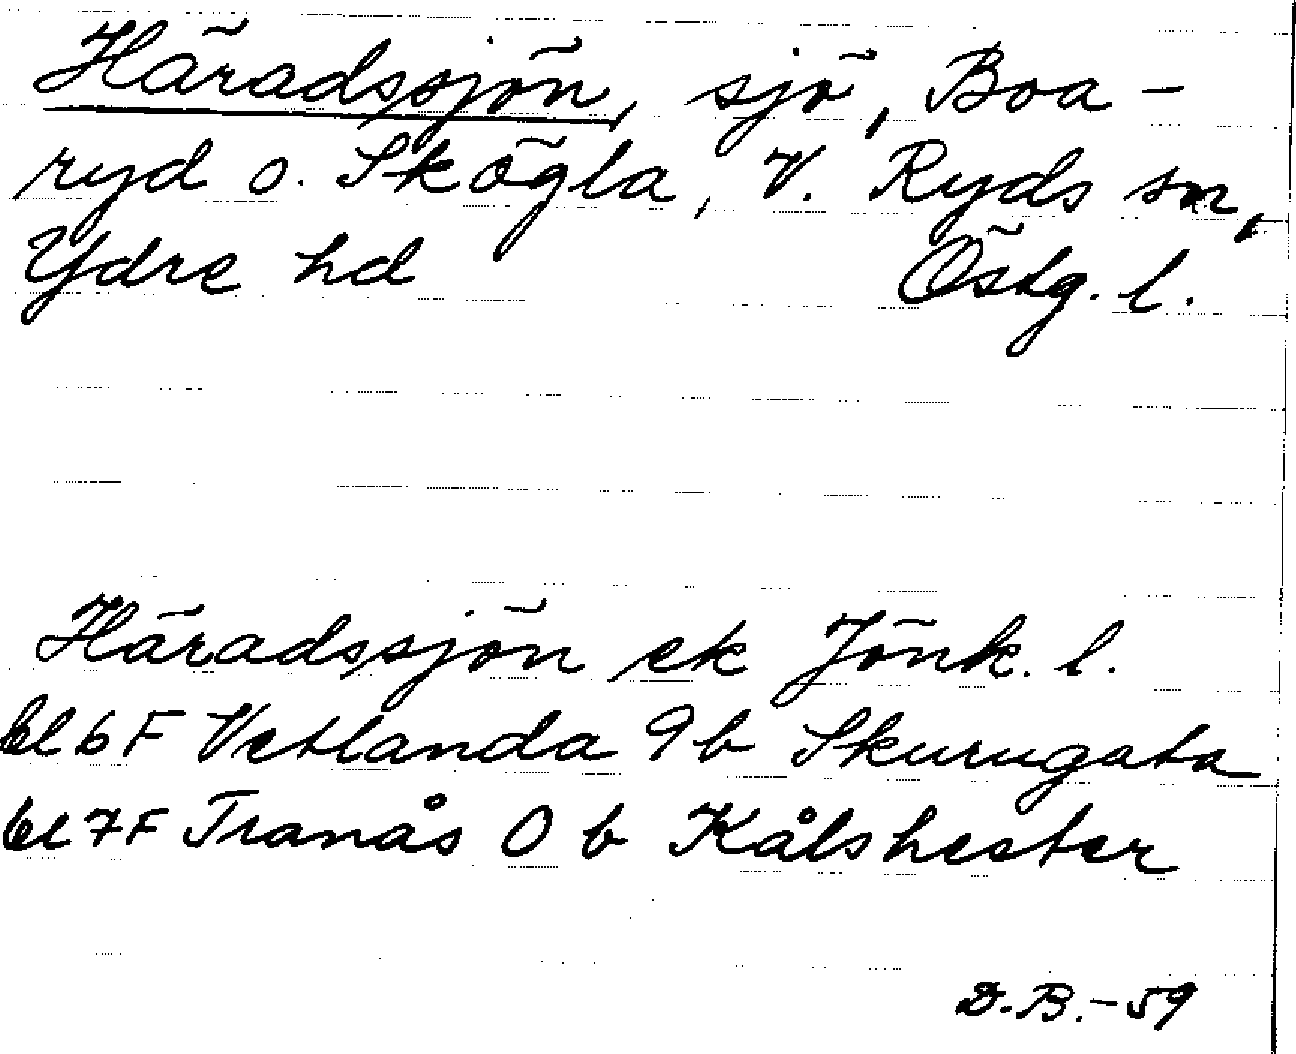 Häradssjön, sjö, Boa-
ryd o. Skögla, V. Ryds sn,
Ydre hd Östg. l.
Häradssjön ek Jönk. l.
bl 6F Vetlanda 9b Skurugata
bl 7F Tranås 0b Kålshester
D.B.-59